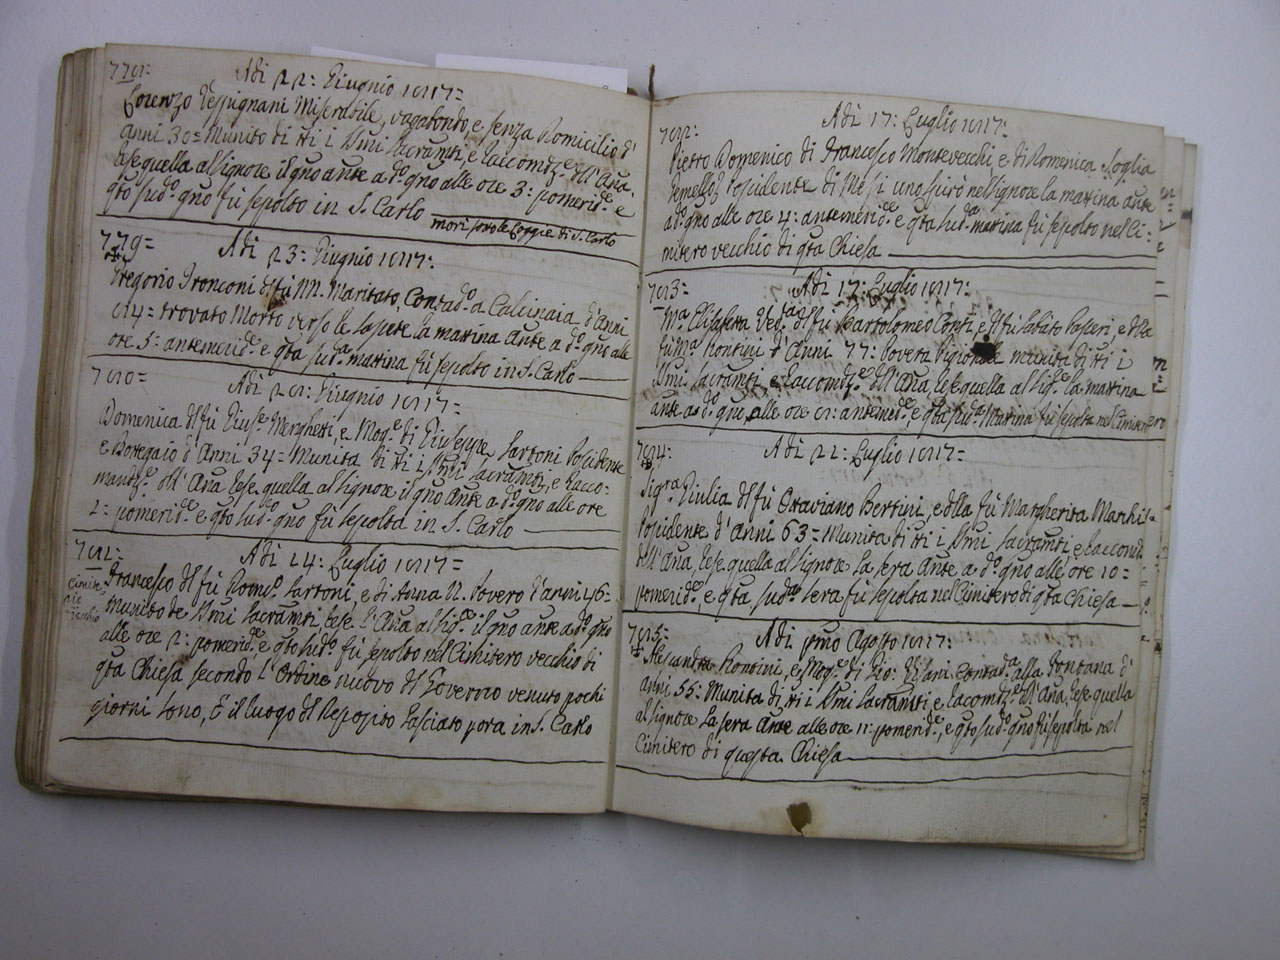 778:
Adì 22: Giugno 1817=
Lorenzo Vespignani Miserabile, vagabondo, e senza Domicilio d'
anni 30= Munito di tti i SSmi Sacramti, e Raccomdz.e dll'Ana.
rese quella al Signore il gno ante a d.o gno alle ore 3: pomerid.e e
qto sud.o gno fù sepolto in S. Carlo
morì sotto le Loggie di S. Carlo
779=
Adì 23: Giugno 1817:
Gregorio Tronconi dl fù NN. Maritato, Contad.o a Calcinaia d'Anni
84= trovato Morto verso le Sapete la matina Ante a d.o gno alle
ore 5: antemerid.e e qta sud.a matina fù sepolto in S. Carlo
780=
Adì 28: Giugno 1817=
Domenica dl fù Gius.e Merghetti, e Mog.e di Giuseppe Sartoni Possidente
e Bottegaio d'Anni 34= Munita di tti i SSmi Sacramti, e Racco-
mandz.e dll'Ana rese quella al Signore il gno Ante a d.o gno alle ore
2= pomerid.e e qto sud.o gno fù sepolta in S. Carlo
781=
Adì 14: Luglio 1817=
Cimite-
rio
Vecchio
Francesco dl fù Dom.co Sartoni, e di Anna N. Povero d'anni 46=
Munito de SSmi Sacramti, rese l'Ana al Sig.e il gno ante a d.o gno
alle ore 2: pomerid.e, e qto sud.o fù sepolto nel Cimitero vecchio di
qta Chiesa secondo l'Ordine nuovo dl Governo venuto pochi
giorni sono, e il luogo dl Deposito lasciato pora in S. Carlo
782:
Adì 17: Luglio 1817:
Pietro Domenico di Francesco Montevecchi, e di Domenica Soglia
Gemello Possidente di Mesi uno spirò nel Signore la matina ante
a d.o gno alle ore 4: antemerid.e e qta sud.a matina fù sepolto nel Ci=
mitero vecchio di qta Chiesa
783:
Adì 17: Luglio 1817:
M.a Elisabetta Ved.a dl fù Bartolomeo Conti, e dl fù Sabato Passeri, e dlla
fù M.a Rontini d'Anni 77: Povera Pigionale munita di tti i
SSmi Sacramti e Raccomdz.e dll'Ana, rese quella al Sig.e la matina
ante a d.o gno, alle ore 8: antemed.e, e qta sud.a Matina fù sepolta nel Cimitero
784:
Adì 22: Luglio 1817=
Sig.ra Giulia dl fù Ottaviano Bertini, e dlla fù Margherita Marchi
Possidente d'Anni 63= Munita di tti i SSmi Sacramti e Raccomd
dll'Ana, rese quella al Signore la sera Ante a d.o gno alle ore 10=
pomerid.e, e qta sud.a sera fù sepolta nel Cimitero di qta Chiesa
785:
Adì pmo Agosto 1817:
Alessandra Rontini, e Mog.e di Gio: Visani Contad.a alla Fontana d'
anni 55: Munita di tti i SSmi Sacramti, e Raccomdz.e dll'Ana, rese quella
al Signore la sera Ante alle ore 11: pomerid.e, e qto sud.o gno fù sepolta nel
Cimitero di questa Chiesa